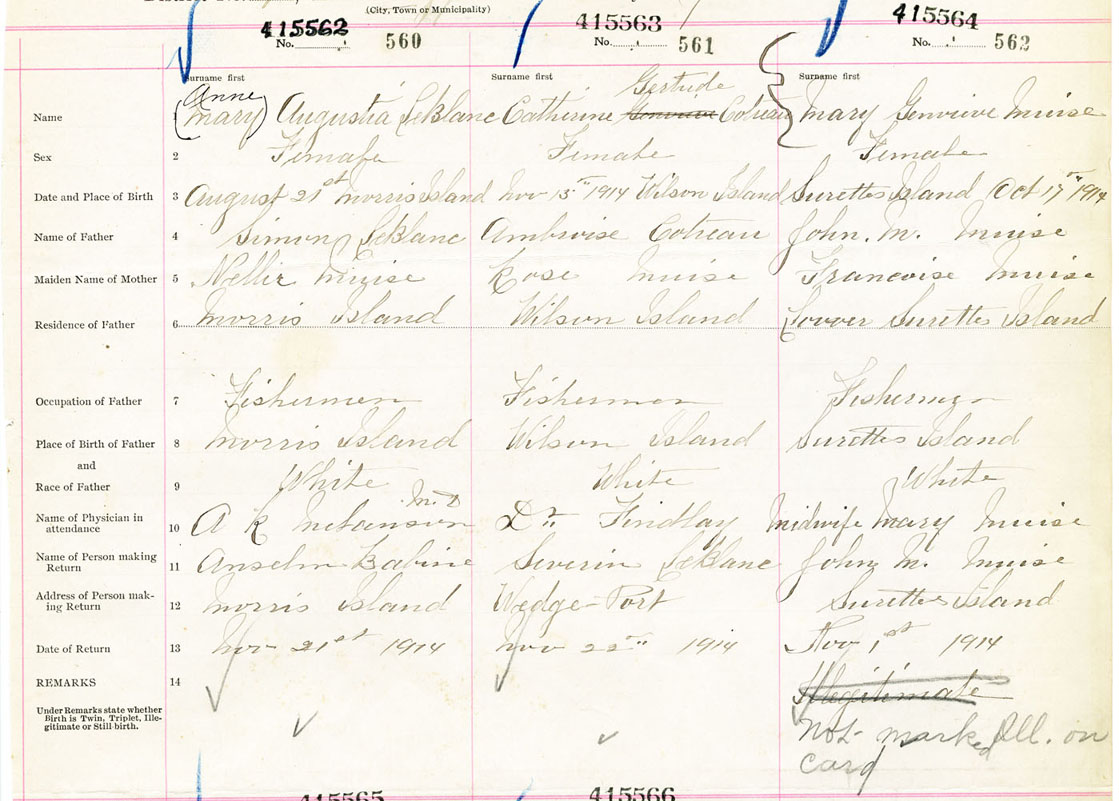 (City, Town or Municipality)
415562 415563 415564
No. 560 No. 561 No. 562
Surname first Surname first Surname first
Anne Gertrude
Name 1 (Mary) Augustia LeBlanc Catherine Genvieve Cotreau Mary Genvieve Muise
Sex 2 Female Female Female
Date and Place of Birth 3 August 21st Morris Island Nov 13th 1914 Wilson Island Surettes Island Oct 17th 1914
Name of Father 4 Simon LeBlanc Ambroise Cotreau John. M. Muise
Maiden Name of Mother 5 Nellie Muise Rose Muise Francoise Muise
Residence of Father 6 Morris Island Wilson Island Lower Surettes Island
Occupation of Father 7 Fishermen Fishermen Fisherman
Place of Birth of Father 8 Morris Island Wilson Island Surettes Island
and
Race of Father 9 White White White
M.D
Name of Physician in
attendance 10 A K Melanson Dr. Findlay Midwife Mary Muise
Name of Person making
Return 11 Anselm Babine Severin LeBlanc John M. Muise
Address of Person mak-
ing Return 12 Morris Island Wedge-Port Surettes Island
Date of Return 13 Nov 21st 1914 Nov 22nd 1914 Nov 1st 1914
REMARKS 14 Illegitimate
Under Remarks state whether
Birth is Twin, Triplet, Ille-
gitimate or Still-birth.
Not marked Ill. on
card
415565 415566